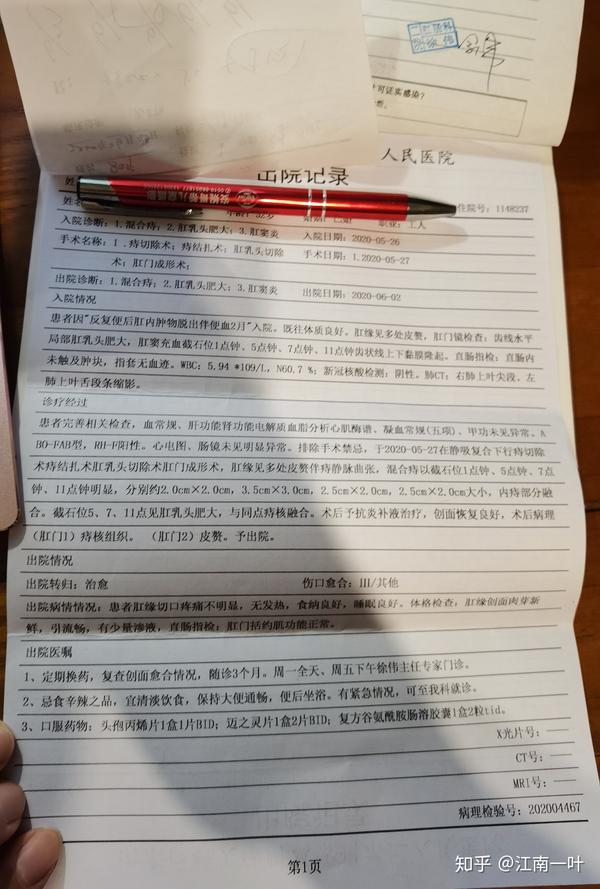 可证实感染?
人民医院
出院记录
住院号: 1148237
入院诊断: 1.混合痔; 2.肛乳头肥大; 3.肛窦炎 入院日期: 2020-05-26
手术名称: 1 . 痔切除术; 痔结扎术; 肛乳头切除 手术日期: 1.2020-05-27
术; 肛门成形术;
出院诊断: 1.混合痔; 2.肛乳头肥大; 3.肛窦炎 出院日期: 2020-06-02
入院情况
患者因"反复便后肛内肿物脱出伴便血2月"入院。既往体质良好。肛缘见多处皮赘, 肛门镜检查: 齿线水平
局部肛乳头肥大, 肛窦充血截石位1点钟、5点钟、7点钟、11点钟齿状线上下黏膜隆起。直肠指检: 直肠内
未触及肿块, 指套无血迹。WBC: 5.94 *109/L, N60.7 %; 新冠核酸检测: 阴性。肺CT: 右肺上叶尖段、左
肺上叶舌段条缩影。
诊疗经过
患者完善相关检查, 血常规、肝功能肾功能电解质血脂分析心肌酶谱、凝血常规(五项)、甲功未见异常。A
BO-FAB型, RH-F阳性。心电图、肠镜未见明显异常。排除手术禁忌, 于2020-05-27在静吸复合下行痔切除
术痔结扎术肛乳头切除术肛门成形术, 肛缘见多处皮赘伴痔静脉曲张, 混合痔以截石位1点钟、5点钟、7点
钟、11点钟明显, 分别约2.0cm×2.0cm, 3.5cm×3.0cm, 2.5cm×2.0cm, 2.5cm×2.0cm大小, 内痔部分融
合。截石位5、7、11点见肛乳头肥大, 与同点痔核融合。术后予抗炎补液治疗, 创面恢复良好, 术后病理
(肛门1) 痔核组织。 (肛门2) 皮赘。予出院。
出院情况
出院转归: 治愈 伤口愈合: III/其他
出院病情情况: 患者肛缘切口疼痛不明显, 无发热, 食纳良好, 睡眠良好。体格检查: 肛缘创面肉芽新
鲜, 引流畅, 有少量渗液, 直肠指检: 肛门括约肌功能正常。
出院医嘱
1、定期换药, 复查创面愈合情况, 随诊3个月。周一全天、周五下午徐伟主任专家门诊。
2、忌食辛辣之品, 宜清淡饮食, 保持大便通畅, 便后坐浴。有紧急情况, 可至我科就诊。
3、口服药物: 头孢丙烯片1盒1片BID; 迈之灵片1盒2片BID; 复方谷氨酰胺肠溶胶囊1盒2粒tid。
X光片号: ——
CT号: ——
MRI号: ——
病理检验号: 202004467
第1页
知乎 @江南一叶